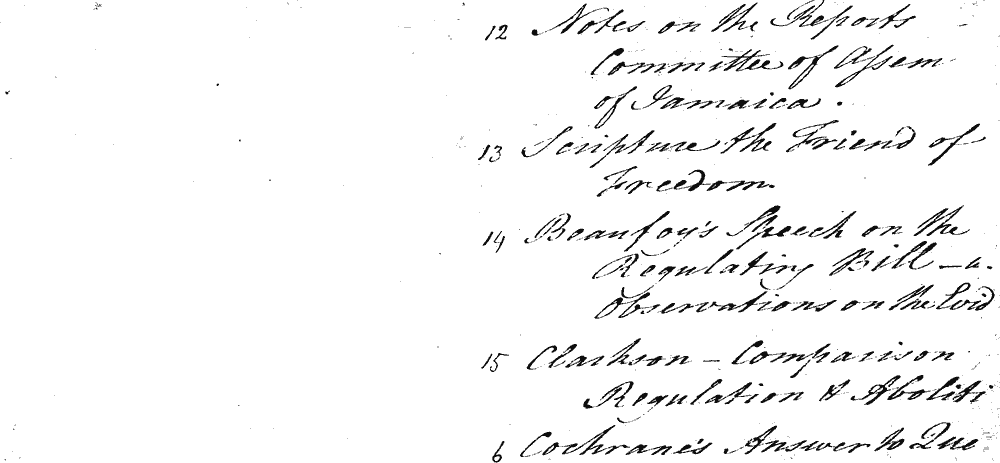 12 Notes on the Reports
Committee of Assem
of Jamaica.
13 Scripture the Friend of
Freedom.
14 Beaufoy's Speech on the
Regulating Bill - a
Observations on the Evid
15 Clarkson - Comparison
Regulation & Aboliti
6 Cochrane's Answer to Que